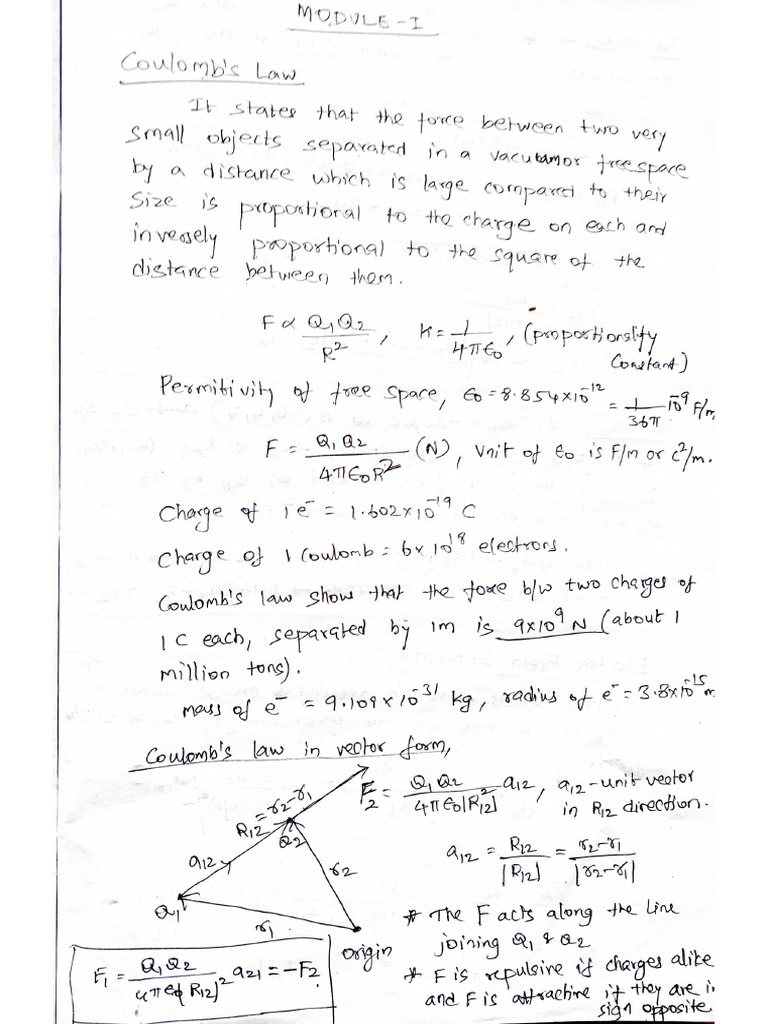 MODULE-I
Coulomb's Law
It states that the force between two very
small objects separated in a vacuum or free space
by a distance which is large compared to their
size is proportional to the charge on each and
inversely proportional to the square of the
distance between them.
F ∝ Q₁Q₂/R², K = 1/4πϵ₀, (proportionality
Constant)
Permitivity of free space, ϵ₀ = 8.854×10⁻¹² = 1/36π 10⁻⁹ F/m
F = Q₁Q₂/4πϵ₀R² (N), Unit of ϵ₀ is F/m or c²/m.
Charge of 1 e⁻ = 1.602×10⁻¹⁹ C
Charge of 1 Coulomb = 6×10¹⁸ electrons.
Coulomb's law show that the force b/w two charges of
1 C each, separated by 1m is 9×10⁹ N (about 1
million tons).
mass of e⁻ = 9.109×10⁻³¹ kg, radius of e⁻ = 3.8×10⁻¹⁵ m
Coulomb's law in vector form,
F₂ = Q₁Q₂/4πϵ₀|R₁₂|² a₁₂, a₁₂ - unit vector
in R₁₂ direction.
R₁₂ = r₂-r₁
a₁₂
Q₂
r₂
Q₁
r₁
origin
a₁₂ = R₁₂/|R₁₂| = r₂-r₁/|r₂-r₁|
* The F acts along the line
joining Q₁ & Q₂
* F is repulsive if charges alike
and F is attractive if they are i
sign opposite
F₁ = Q₁Q₂/4πϵ₀|R₁₂|² a₂₁ = -F₂